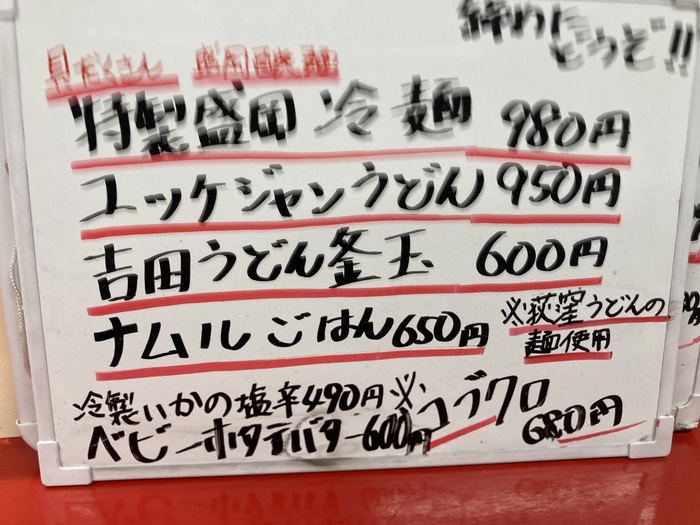 締めに
どうぞ!!
具だくさん 盛岡冷麺
特製盛岡冷麺 980円
ユッケジャンうどん 950円
吉田うどん釜玉 600円
ナムルごはん 650円
※荻窪うどんの
麺使用
冷製いかの塩辛490円※
コブクロ
680円
ベビーホタテバター600円